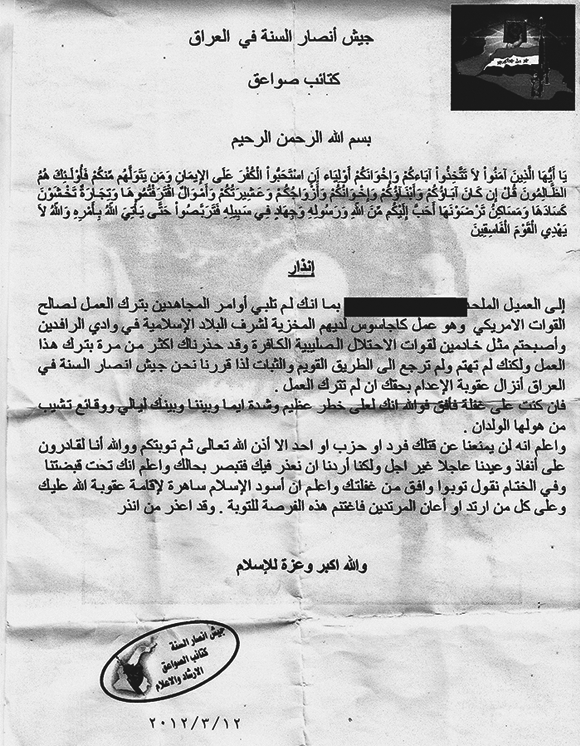 جيش أنصار السنة في العراق
كتائب صواعق
بسم الله الرحمن الرحيم
يَا أَيُّهَا الَّذِينَ آمَنُواْ لاَ تَتَّخِذُواْ آبَاءكُمْ وَإِخْوَانَكُمْ أَوْلِيَاء إَنِ اسْتَحَبُّواْ الْكُفْرَ عَلَى الإِيمَانِ وَمَن يَتَوَلَّهُم مِّنكُمْ فَأُوْلَئِكَ هُمُ
الظَّالِمُونَ قُلْ إِن كَانَ آبَاؤُكُمْ وَأَبْنَآؤُكُمْ وَإِخْوَانُكُمْ وَأَزْوَاجُكُمْ وَعَشِيرَتُكُمْ وَأَمْوَالٌ اقْتَرَفْتُمُوهَا وَتِجَارَةٌ تَخْشَوْنَ
كَسَادَهَا وَمَسَاكِنُ تَرْضَوْنَهَا أَحَبَّ إِلَيْكُم مِّنَ اللّهِ وَرَسُولِهِ وَجِهَادٍ فِي سَبِيلِهِ فَتَرَبَّصُواْ حَتَّى يَأْتِيَ اللّهُ بِأَمْرِهِ وَاللّهُ لاَ
يَهْدِي الْقَوْمَ الْفَاسِقِينَ
إنذار
إلى العميل الملحد بما انك لم تلبي أوامر المجاهدين بترك العمل لصالح
القوات الامريكي وهو عمل كاجاسوس لديهم المخزية لشرف البلاد الإسلامية في وادي الرافدين
وأصبحتم مثل خادمين لقوات الاحتلال الصليبية الكافرة وقد حذرناك اكثر من مرة بترك هذا
العمل ولكنك لم تهتم ولم ترجع الى الطريق القويم والثبات لذا قررنا نحن جيش انصار السنة في
العراق أنزال عقوبة الإعدام بحقك ان لم تترك العمل .
فان كنت على غفلة فأفق فوالله انك لعلى خطر عظيم وشدة ايما وبيننا وبينك ليالي ووقائع تشيب
من هولها الولدان .
واعلم انه لن يمنعنا عن قتلك فرد او حزب او احد الا أذن الله تعالى ثم توبتكم ووالله أنا لقادرون
على أنفاذ وعيدنا عاجلا غير اجل ولكنا أردنا ان نعذر فيك فتبصر بحالك واعلم انك تحت قبضتنا
وفي الختام نقول توبوا وافق من غفلتك واعلم ان أسود الإسلام ساهرة لإقامة عقوبة الله عليك
وعلى كل من ارتد او أعان المرتدين فاغتنم هذه الفرصة للتوبة . وقد اعذر من انذر
والله اكبر وعزة للإسلام
جيش انصار السنة
كتائب الصواعق
الارشاد والاعلام
٢٠١٢/٣/١٢